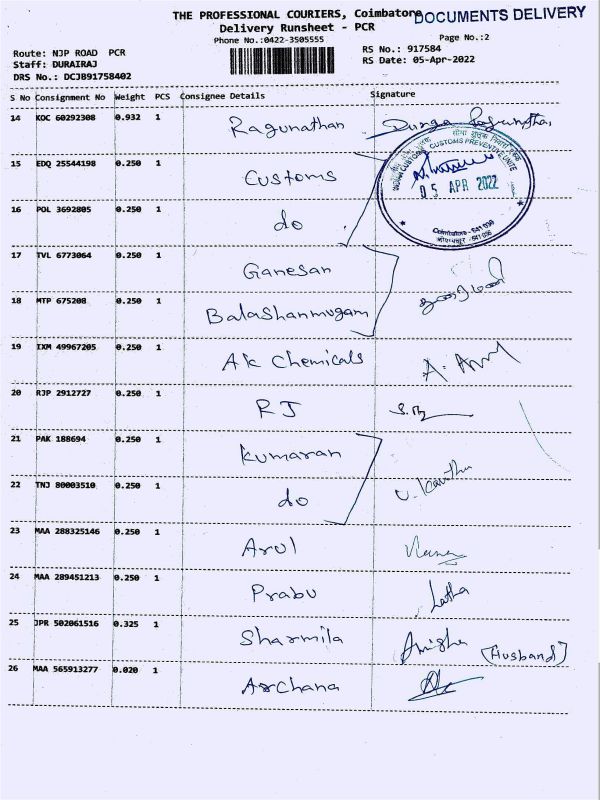 THE PROFESSIONAL COURIERS, Coimbatore
DOCUMENTS DELIVERY
Delivery Runsheet - PCR
Phone No.:0422-3505555
Page No.:2
Route: NJP ROAD PCR
RS No.: 917584
Staff: DURAIRAJ
RS Date: 05-Apr-2022
DRS No.: DCJ891758402
S No Consignment No Weight PCS Consignee Details Signature
14 KOC 60292308 0.932 1 Ragunathan Durga
15 EDQ 25544198 0.250 1 Customs
INDIAN CUSTOMS CUSTOMS PREVENTIVE UNIT
05 APR 2022
Coimbatore - 641
16 POL 3692805 0.250 1 do
17 TVL 6773064 0.250 1 Ganesan
18 MTP 675208 0.250 1 Balashanmugam
19 IXM 49967205 0.250 1 AK Chemicals A.
20 RJP 2912727 0.250 1 RJ
21 PAK 188694 0.250 1 Kumaran
22 TNJ 80003510 0.250 1 do
23 MAA 288325146 0.250 1 Arul
24 MAA 289451213 0.250 1 Prabu Latha
25 JPR 502061516 0.325 1 Sharmila [Husband]
26 MAA 565913277 0.020 1 Archana